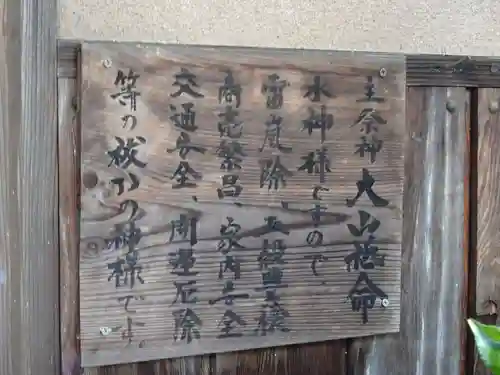 主祭神 大山祗命
水神様ですので、
雷嵐除、五穀豊穣
商売繁昌、家内安全
交通安全、開運厄除
等の祓いの神様です。